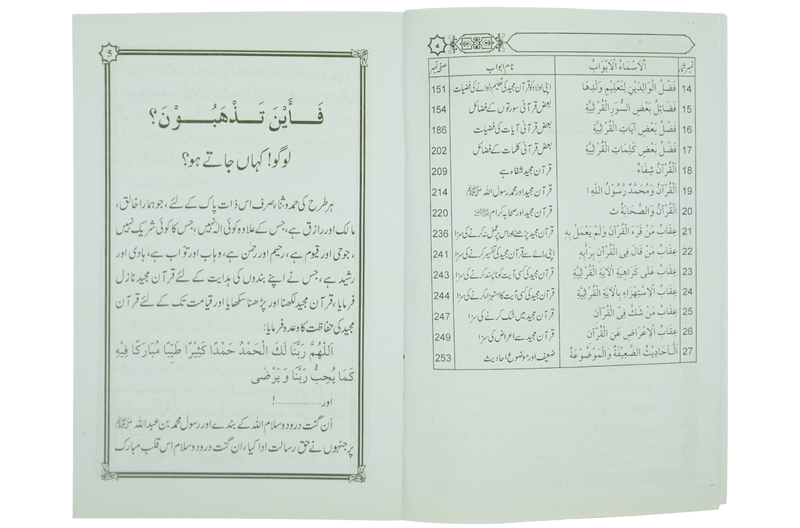 4
نمبر شمار اَلْاَسْمَاءُ الْاَبْوَابُ نام ابواب صفحہ نمبر
14 فَضْلُ الْوَالِدَيْنِ لِتَعْلِيْمِ وَلَدِهَا اپنی اولاد کو قرآن مجید کی تعلیم دلوانے کی فضیلت 151
15 فَضَائِلُ بَعْضِ السُّوَرِ الْقُرْآنِيَّةِ بعض قرآنی سورتوں کے فضائل 154
16 فَضْلُ بَعْضِ آيَاتِ الْقُرْآنِيَّةِ بعض قرآنی آیات کی فضیلت 186
17 فَضْلُ بَعْضِ كَلِمَاتِ الْقُرْآنِيَّةِ بعض قرآنی کلمات کے فضائل 202
18 اَلْقُرْآنُ شِفَاءٌ قرآن مجید شفاء ہے 209
19 اَلْقُرْآنُ وَمُحَمَّدٌ رَّسُوْلُ اللّٰهِ ﷺ قرآن مجید اور محمد رسول اللہ ﷺ 214
20 اَلْقُرْآنُ وَالصَّحَابَةُ قرآن مجید اور صحابہ کرام 220
21 عِقَابُ مَنْ قَرَءَ الْقُرْآنَ وَلَمْ يَعْمَلْ بِهِ قرآن مجید پڑھنے اور اس پر عمل نہ کرنے کی سزا 236
22 عِقَابُ مَنْ قَالَ فِى الْقُرْآنِ بِرَأْيِهِ اپنی رائے سے قرآن مجید کی تفسیر کرنے کی سزا 241
23 عِقَابُ عَلٰى كَرَاهِيَةِ الْآيَةِ الْقُرْآنِيَّةِ قرآن مجید کی کسی آیت کو ناپسند کرنے کی سزا 243
24 عِقَابُ الْاِسْتِهْزَاءِ بِالْآيَةِ الْقُرْآنِيَّةِ قرآن مجید کی کسی آیت کا استہزاء کرنے کی سزا 244
25 عِقَابُ مَنْ شَكَّ فِى الْقُرْآنِ قرآن مجید میں شک کرنے کی سزا 247
26 عِقَابُ الْاِعْرَاضِ عَنِ الْقُرْآنِ قرآن مجید سے اعراض کی سزا 249
27 اَلْاَحَادِيْثُ الضَّعِيْفَةُ وَالْمَوْضُوْعَةُ ضعیف اور موضوع احادیث 253
5
فَأَيْنَ تَذْهَبُوْنَ؟
لوگو! کہاں جاتے ہو؟
ہر طرح کی حمد و ثناء صرف اس ذات پاک کے لئے، جو ہمارا خالق،
مالک اور رازق ہے، جس کے علاوہ کوئی الٰہ نہیں، جس کا کوئی شریک نہیں
، جو حی اور قیوم ہے، رحیم اور رحمٰن ہے، وہاب اور تواب ہے، ہادی اور
رشید ہے، جس نے اپنے بندوں کی ہدایت کے لئے قرآن مجید نازل
فرمایا، قرآن مجید لکھنا اور پڑھنا سکھایا اور قیامت تک کے لئے قرآن
مجید کی حفاظت کا وعدہ فرمایا:
اَللّٰهُمَّ رَبَّنَا لَكَ الْحَمْدُ حَمْدًا كَثِيْرًا طَيِّبًا مُبَارَكًا فِيْهِ
كَمَا يُحِبُّ رَبُّنَا وَ يَرْضٰى
اور..................!
اَن گنت درود و سلام اللہ کے بندے اور رسول محمد بن عبداللہ ﷺ
پر جنہوں نے حق رسالت ادا کیا، ان گنت درود و سلام اس قلب مبارک